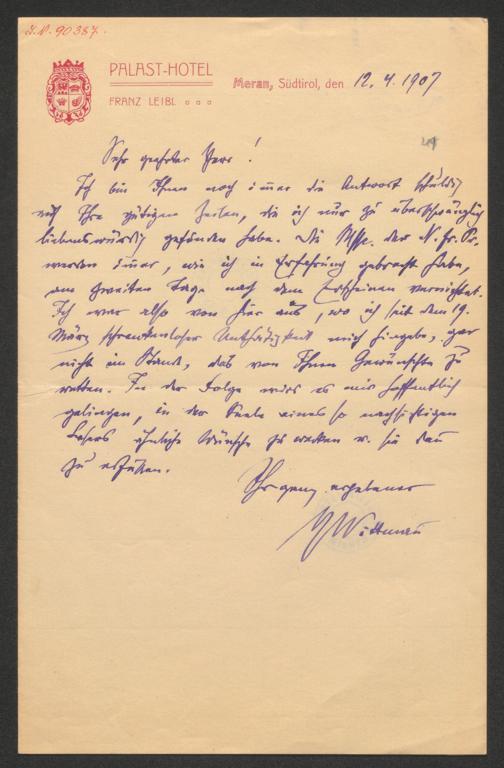 I.N. 90387.
PALAST-HOTEL
FRANZ LEIBL
Meran, Südtirol, den 12. 4. 1907
Sehr geehrter Herr!
Ich bin Ihnen noch immer die Antwort schuldig
auf Ihre gütigen Zeilen, die ich nur zu überschwänglich
liebenswürdig gefunden habe. Die Msse. der N. Fr. Pr.
werden immer, wie ich in Erfahrung gebracht habe,
am zweiten Tage nach dem Erscheinen vernichtet.
Ich war also von hier aus, wo ich seit dem 19.
März schrankenloser Unthätigkeit mich hingebe, gar
nicht im Stande, das von Ihnen Gewünschte zu
retten. In der Folge wird es mir hoffentlich
gelingen, in der Seele eines so nachsichtigen
Lesers ähnliche Wünsche zu wecken u. sie dann
zu erfüllen.
Ihr ganz ergebener
Wittmann